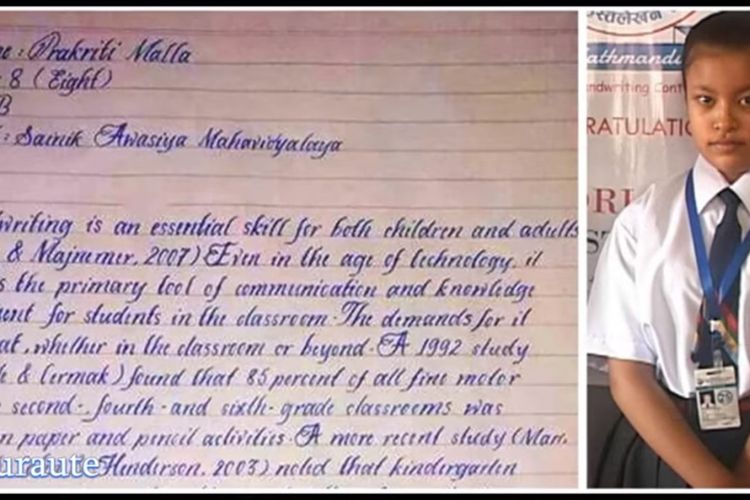 : Prakriti Malla
8 (Eight)
B
: Sainik Awasiya Mahavidyalaya
writing is an essential skill for both children and adults
& Majnemer, 2007) Even in the age of technology, it
the primary tool of communication and knowledge
for students in the classroom. The demands for it
whether in the classroom or beyond. A 1992 study
& Cermak) found that 85 percent of all fine motor
second-, fourth-and sixth-grade classrooms was
paper and pencil activities. A more recent study (Marr,
Henderson, 2003) noted that kindergarten
uraute
हस्तलेखन
athmandu
andwriting Cont
RATULATIO